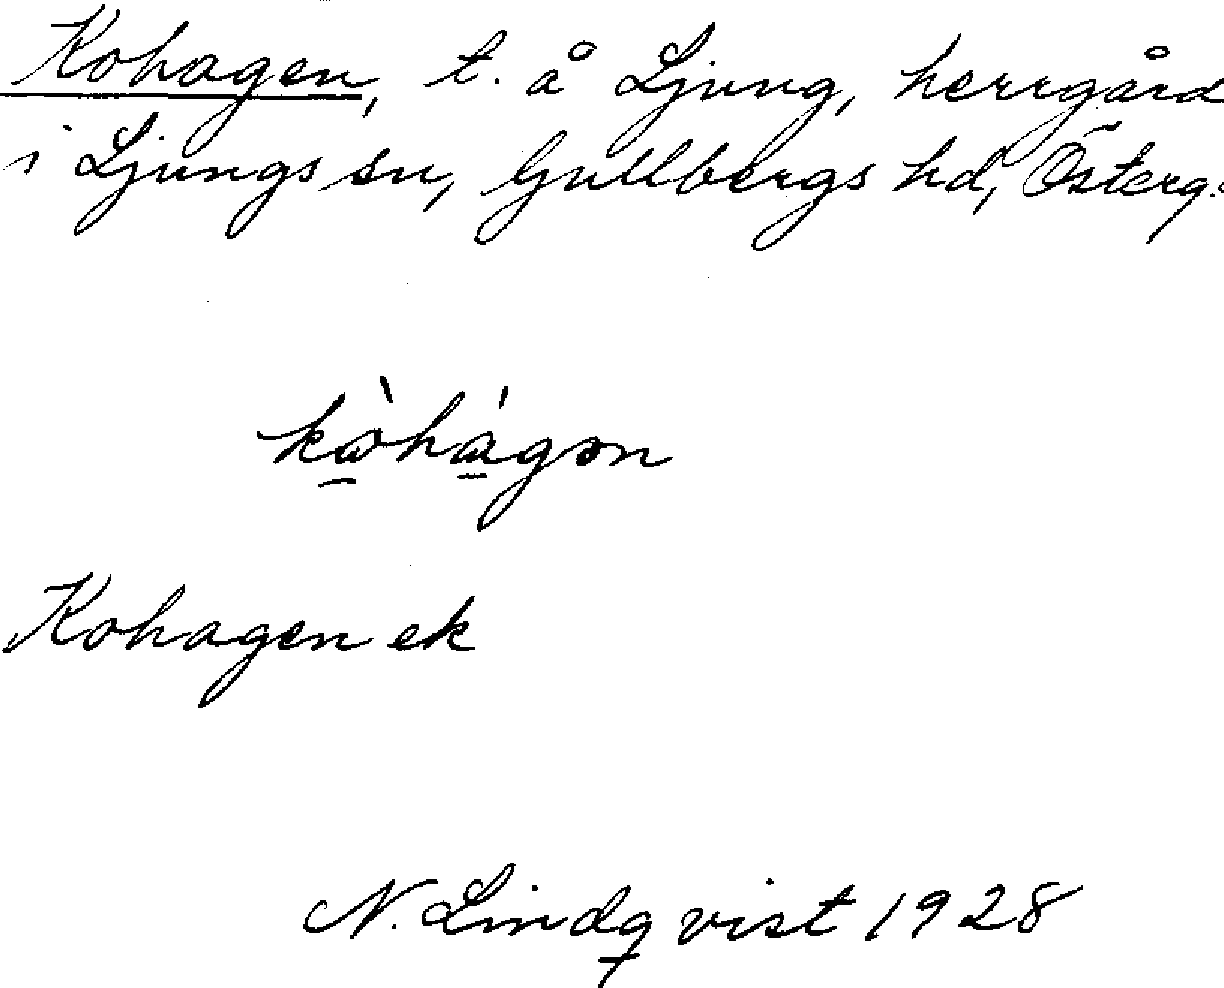 Kohagen, t. å Ljung, herrgård
i Ljungs sn, Gullbergs hd, Österg.
kòhágən
Kohagen ek
N. Lindqvist 1928